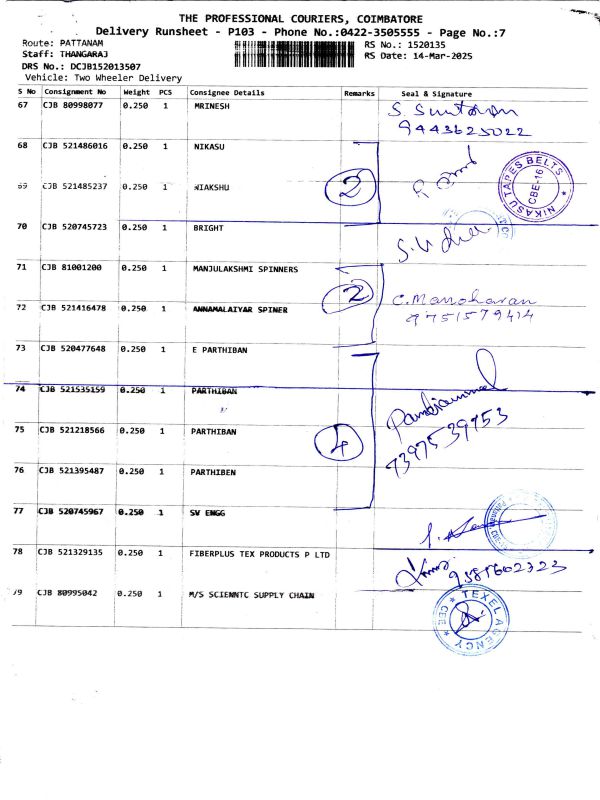 THE PROFESSIONAL COURIERS, COIMBATORE
Delivery Runsheet - P103 - Phone No.:0422-3505555 - Page No.:7
Route: PATTANAM RS No.: 1520135
Staff: THANGARAJ RS Date: 14-Mar-2025
DRS No.: DCJB152013507
Vehicle: Two Wheeler Delivery
S No Consignment No Weight PCS Consignee Details Remarks Seal & Signature
67 CJB 80998077 0.250 1 MRINESH
9443625022
68 CJB 521486016 0.250 1 NIKASU
NIKASU TAPES BELTS CBE-16
69 CJB 521485237 0.250 1 NIAKSHU 2
70 CJB 520745723 0.250 1 BRIGHT
71 CJB 81001200 0.250 1 MANJULAKSHMI SPINNERS
2 C. Manoharan
72 CJB 521416478 0.250 1 ANNAMALAIYAR SPINER
9751579414
73 CJB 520477648 0.250 1 E PARTHIBAN
74 CJB 521535159 0.250 1 PARTHIBAN
75 CJB 521218566 0.250 1 PARTHIBAN 4
7397539753
76 CJB 521395487 0.250 1 PARTHIBEN
77 CJB 520745967 0.250 1 SV ENGG
78 CJB 521329135 0.250 1 FIBERPLUS TEX PRODUCTS P LTD
9581602323
79 CJB 80995042 0.250 1 M/S SCIENNTC SUPPLY CHAIN
TEXEL AGENCY